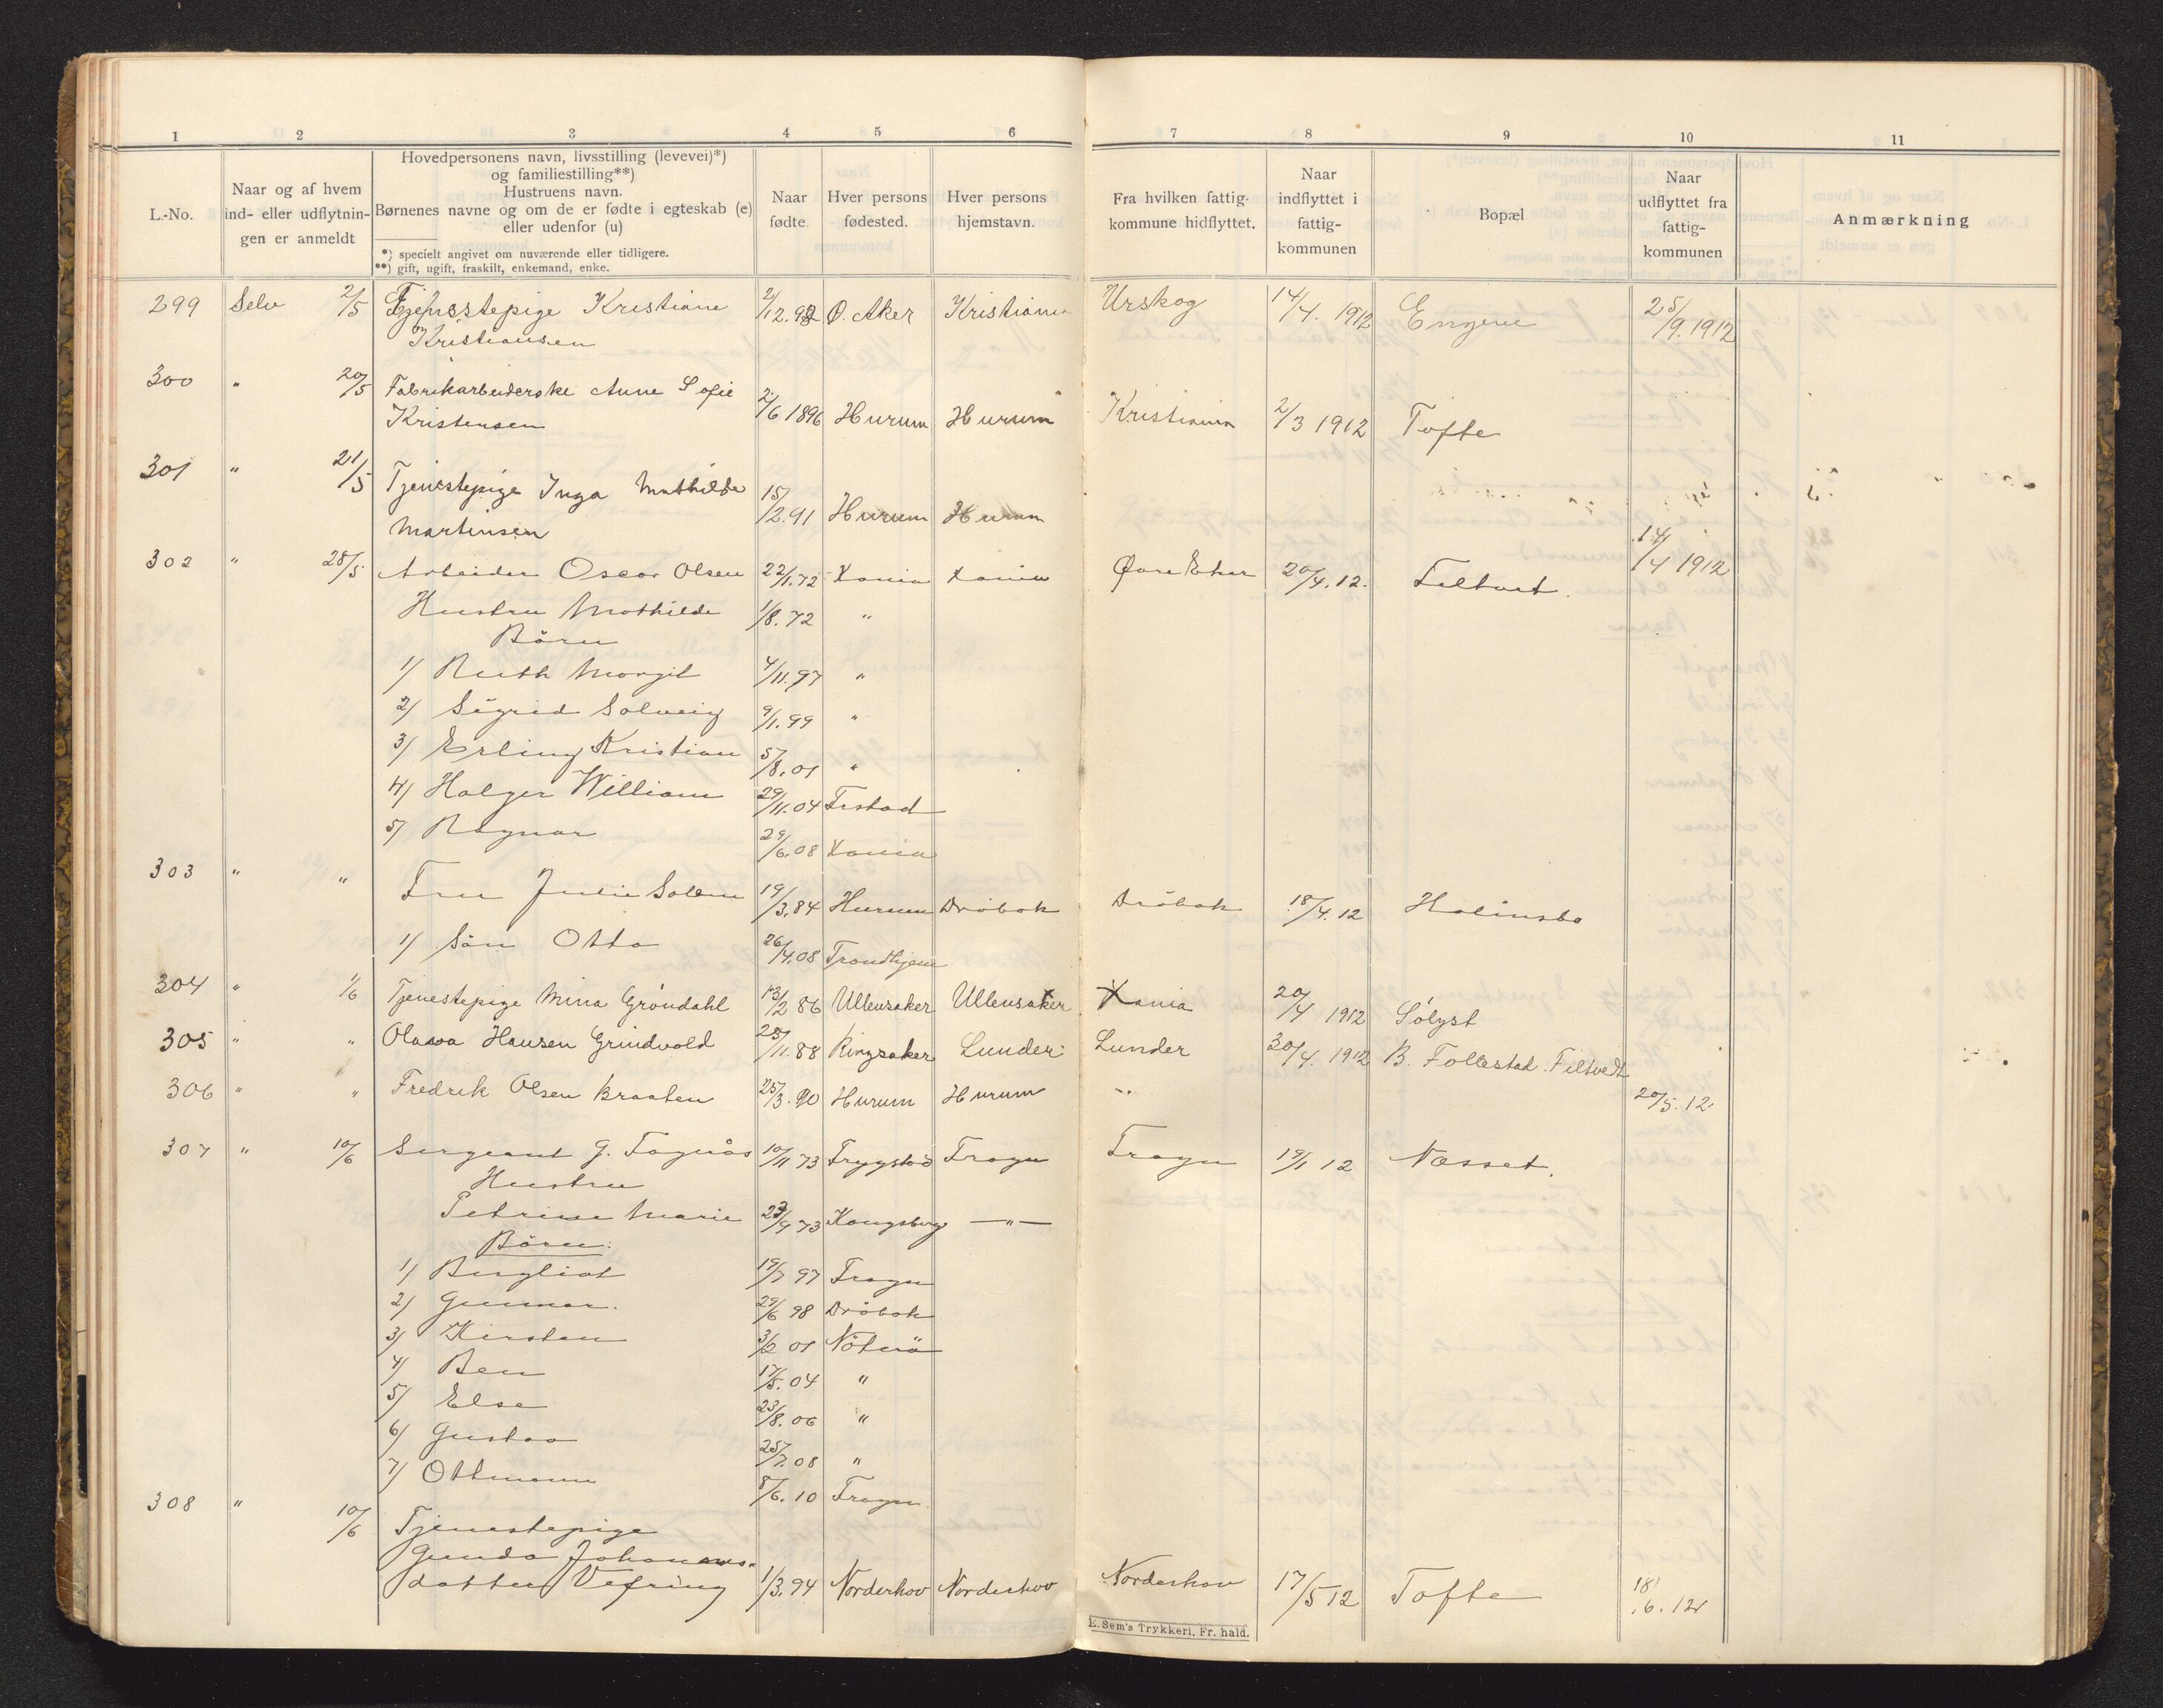 1 2 3 4 5 6 7 8 9 10 11
L.-No.
Naar og af hvem
ind- eller udflytnin-
gen er anmeldt
Hovedpersonens navn, livsstilling (levevei)*)
og familiestilling**)
Hustruens navn.
Børnenes navne og om de er fødte i egteskab (e)
eller udenfor (u)
*) specielt angivet om nuværende eller tidligere.
**) gift, ugift, fraskilt, enkemand, enke.
Naar
fødte.
Hver persons
fødested.
Hver persons
hjemstavn.
Fra hvilken fattig-
kommune hidflyttet.
Naar
indflyttet i
fattig-
kommunen
Bopæl
Naar
udflyttet fra
fattig-
kommunen
Anmærkning
299 Selv 2/5 Tjenestepige Kristiane 2/12.92 Ø. Aker Kristiania Urskog 14/4. 1912 Engene 25/9.1912
Kristiansen
300 " 20/5 Fabrikarbeiderske Anne Sofie
Kristensen 2/6 1896 Hurum Hurum Kristiania 2/3 1912 Tofte
301 " 21/5 Tjenestepige Inga Mathilde
Martinsen 15/2.91 Hurum Hurum 14/4 1912
302 " 28/5 Arbeider Oscar Olsen 22/1.72 Xania Xania Øvre Eker 20/4.12. Filtvet.
Hustru Mathilde 1/8.72 "
Börn
1/ Ruth Margit 4/11.97 "
2/ Sigrid Solveig 9/1.99 "
3/ Erling Kristian 5/8.01 "
4/ Holger William 29/11.04 Frstad
5/ Ragnar 29/6.08 Xania
303 " " Fru Julie Solem 19/3.84 Hurum Dröbak Dröbak 18/4.12 Holmsbo
1/ Sön Otto 26/4.08 Trondhjem
304 " 1/6 Tjenestepige Mina Gröndahl 13/2 86 Ullensaker Ullensaker Xania 20/4 1912 Sölyst
305 " " Olava Hansen Grindvold 25/11.88 Ringsaker Lunder Lunder 30/4. 1912 B. Follestad. Filtvedt
306 " " Fredrik Olsen Braaten 25/3.90 Hurum Hurum " 20/5.12
307 " 10/6 Sergeant G. Fagnås 10/11 73 Trygstad Frogn Frogn 19/1 12 Næsset.
Hustru
Petrine Marie 23/9 73 Kongsberg —"—
Börn:
1/ Bergliot 19/7 97 Frogn
2/ Gunnar. 29/6 98 Dröbak
3/ Kirsten 3/2 01 Nöterö
4/ Ben 17/5.04 "
5/ Else 23/8.06 "
6/ Gustav 25/7.08 "
7/ Ottmann 8/6.10 Frogn.
308 " 10/6 Tjenestepige
Gunda Johannes-
datter Vefring 1/3.94 Norderhov Norderhov Norderhov 17/5 12 Tofte 18/6.12
E. Sem's Trykkeri, Fr. hald.